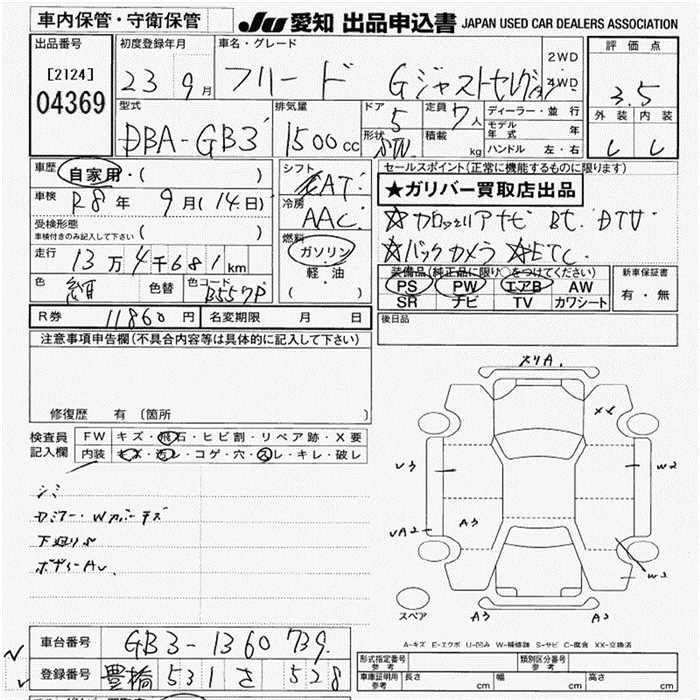 車内保管・守衛保管
JU 愛知 出品申込書 JAPAN USED CAR DEALERS ASSOCIATION
出品番号
[2124]
04369
初度登録年月
23 9月
車名・グレード
フリード Gジャストセレクション
2WD
・4WD
評価点
3.5
外装 内装
C C
型式
DBA-GB3
排気量
1500cc
ドア
5
形状
定員
7人
積載
kg
ディーラー・並行
モデル年式 年
ハンドル 左・右
車歴
自家用・( )
車検
R8年 9月(14日)
受検形態
車検付きのみ記入して下さい
( )
走行
13万4千681km
色
紺
色替
色コード
B557P
シフト
AT
冷房
AAC
燃料
ガソリン
・
軽油
( )
セールスポイント(正常に機能するものに限ります)
★ガリバー買取店出品
☆カロッツェリアナビ Bt. DTV
☆バックカメラ ☆ETC.
装備品(純正品に限り○をつけてください)
PS PW エアB AW
SR ナビ TV カワシート
新車保証書
有・無
後日品
R券 11860円 名変期限 月 日
注意事項申告欄(不具合内容等は具体的に記入して下さい)
修復歴 有 (箇所 )
検査員記入欄
FW キズ・飛石・ヒビ割・リペア跡・X要
内装 キズ・汚レ・コゲ・穴・スレ・キレ・破レ
シミ
下廻りS
メリA.
U3
W2
UA2
A3
W3
A3
A3
スペア
A-キズ E-エクボ U-凹み W-補修跡 S-サビ C-腐食 XX-交換済
車台番号
GB3-1360739
登録番号
豊橋 531 さ 528
形式指定番号
参考
類別区分番号
参考
車庫証明用
参考
長さ cm
幅 cm
高さ cm